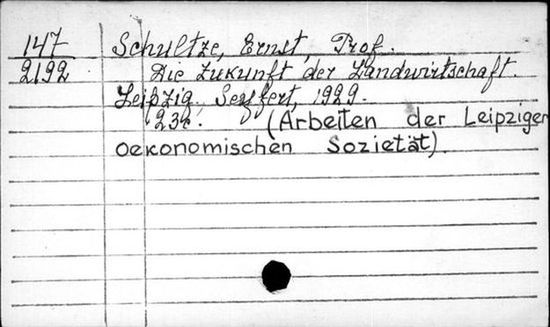 147 Schultze, Ernst, Prof.
2192 Die Zukunft der Landwirtschaft.
Leipzig, Seyfert, 1929.
(Arbeiten der Leipziger
oekonomischen Sozietät).